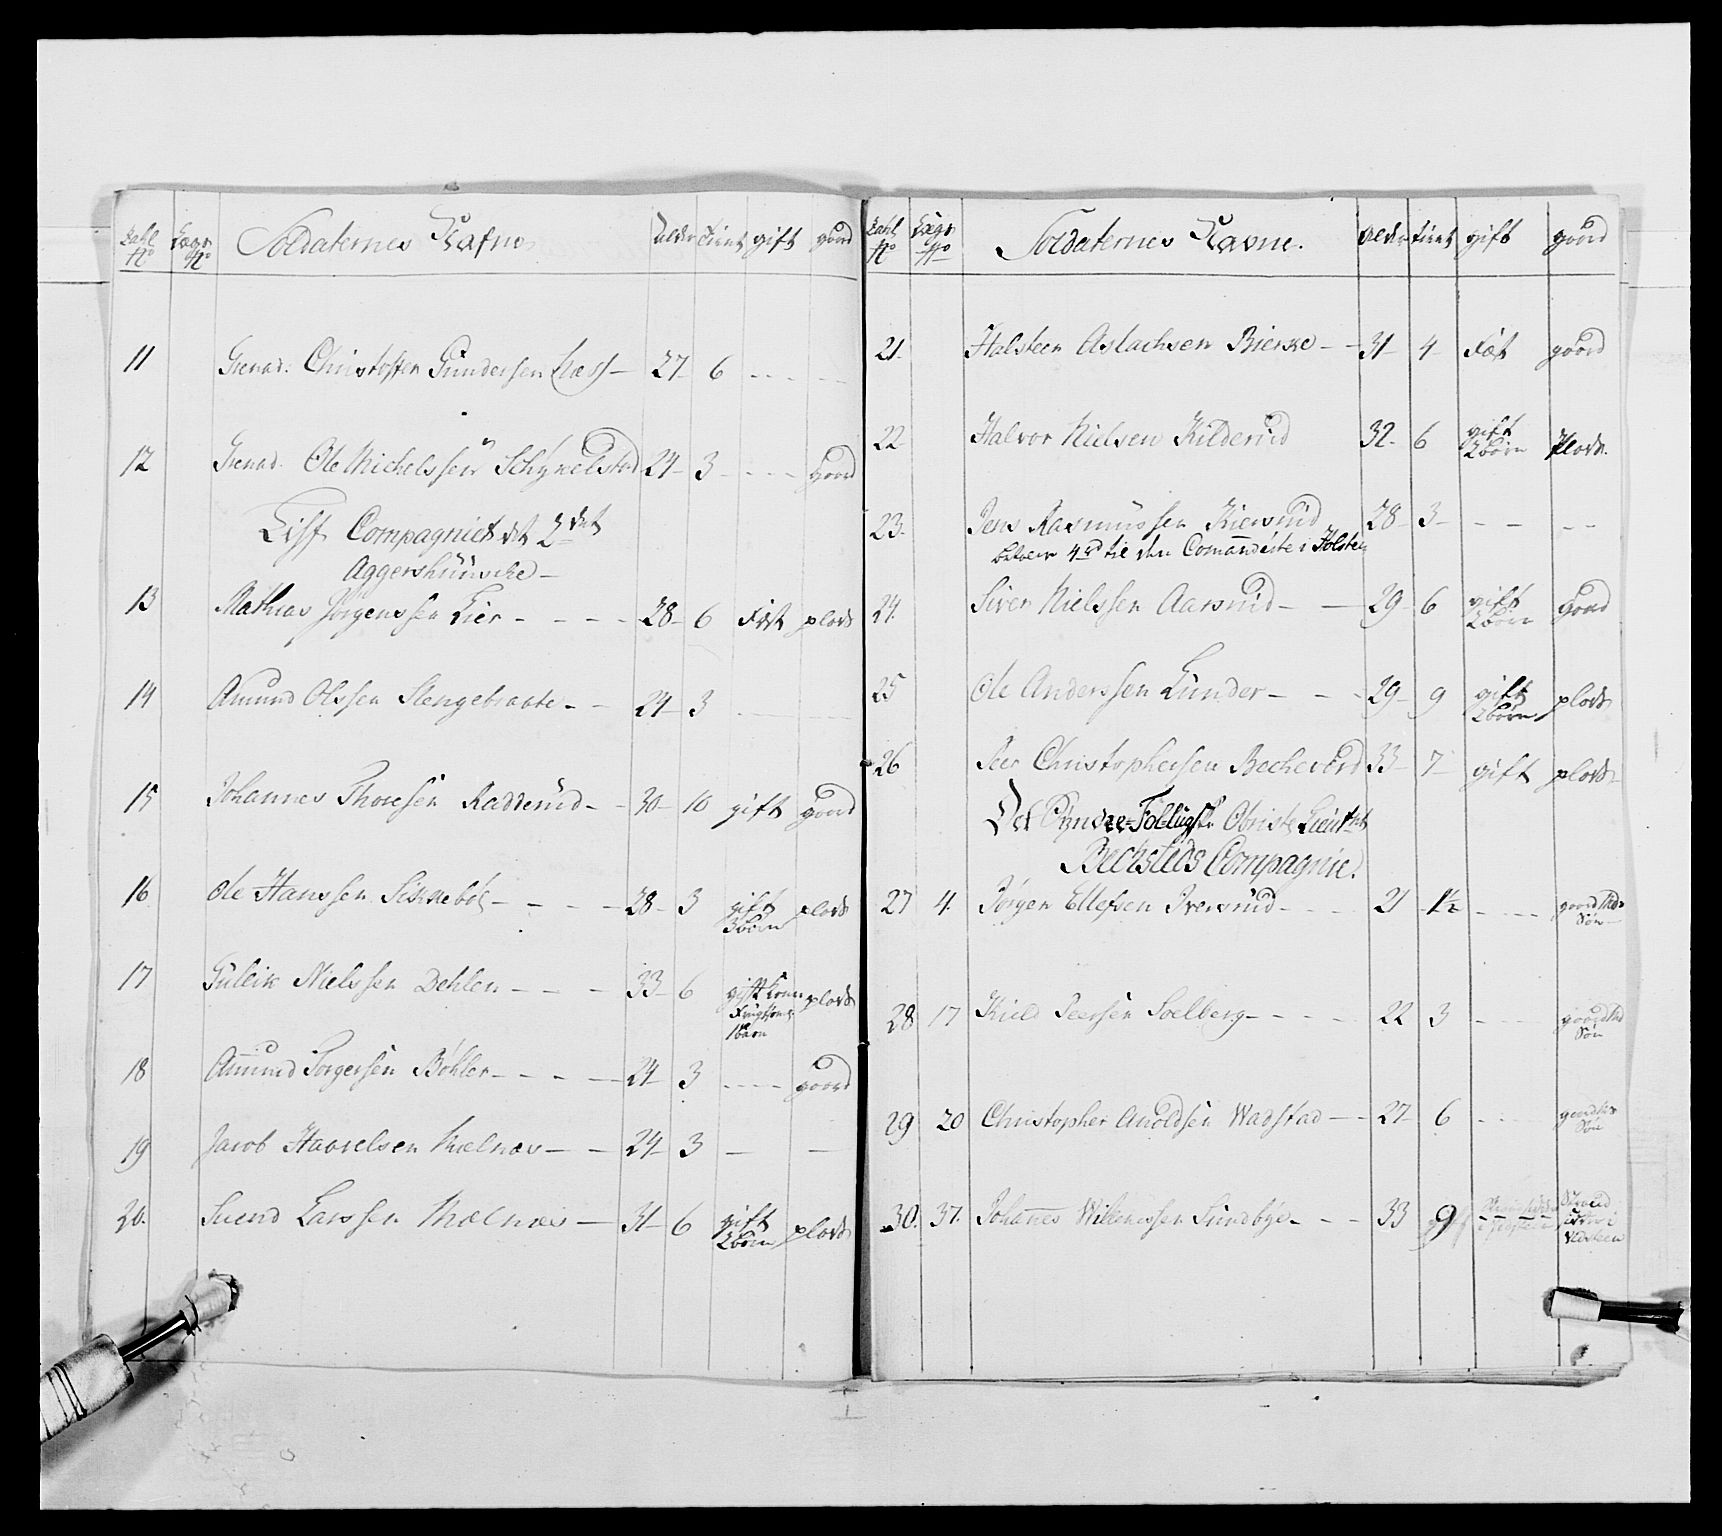 Tahl No Lægs No Soldaternes Nafne Alder Tient gift goord
11 Grenad: Christoffer Gundersen Næs 27 6 - - - - -
12 Grenad. Ole Michelssen 24 3 - - - - goord
Lif Compagniet det 2det
Aggershuusche
13 Mathias Jørgenssen Lier - - - - 28 6 Fæst plads
14 Amund Olssen Slengebraate - - 24 3
15 Johannes Thoresen Radderud - - 30 10 gift goord
16 Ole Hanssen - - - 28 3 gift 3 børn plads
17 Gulbrik Nielssen Dehlen - - - 33 6 gift 1 barn plads
18 Amund Torgersen Bøhler - - - - 24 3 - - - goord
19 Jacob Haavelsen Mælnæs - - 24 3 - -
20. Svend Larssen Mælnæs - 31 6 gift 2 børn plads
Tahl No Lægs No Soldaternes Navne. Alder Tient gift goord
21 Halsteen Aslachsen Bierke - - 31 4 Fæst goord
22 Halvor Nielsen Kilderud 32 6 gift 2 børn Plads.
23. Jens Rasmussen Kiersrud 28 3 - - - -
til den Comanderte i Holsteen
24. Siver Nielssen Aarsrud - - 29 6 gift 2 børn goord
25 Ole Anderssen Lunder - - - 29 9 gift 2 børn plads
26 Peer Christophersen 33 7 gift plads
Det Obriste Lieutnt
Bechsteds Compagnie.
27 4. Jørgen Ellefsen Iversrud - - - 21 1½ - - - goord Søn
28 17 Kield Peersen Soelberg - - - - 22 3 - - - goord Søn
29 20 Christopher Wadstad - - 27 6 - - - Søn
30. 37. Johannes Wilkenssen Sundbye - - - 33 9